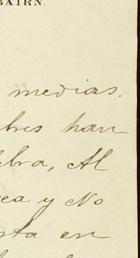 BAIRN.
medias.
bres han
bra, Al
ea y No
ta en